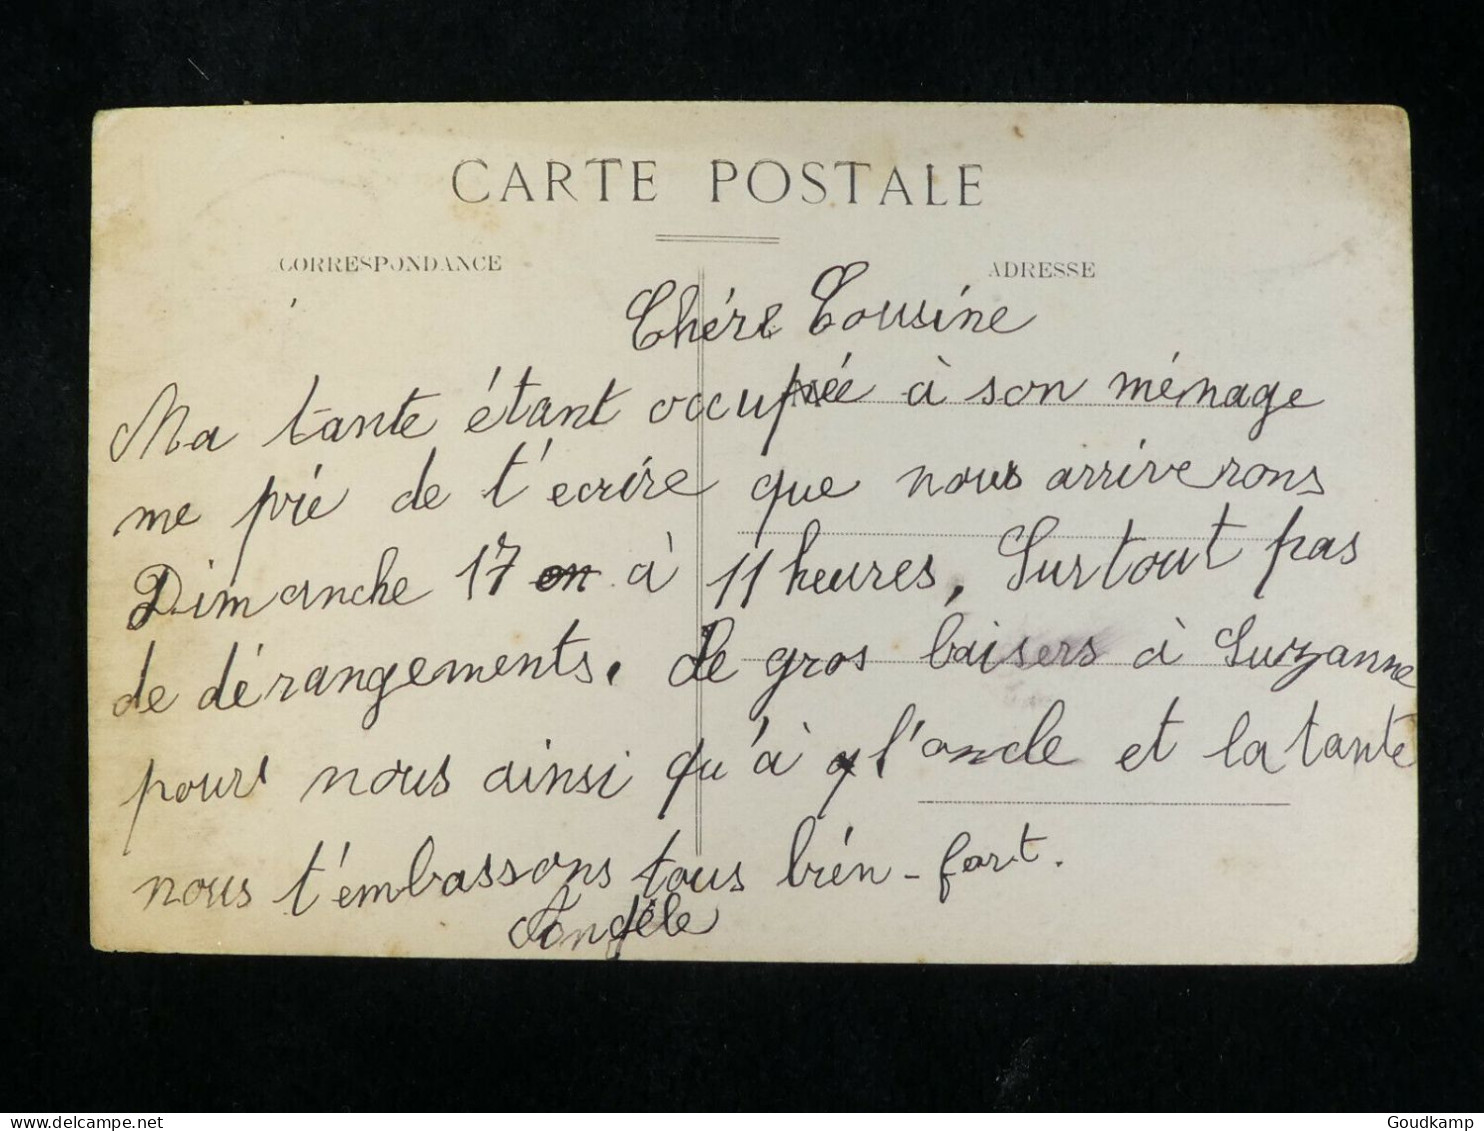 CARTE POSTALE
CORRESPONDANCE
ADRESSE
Chére Cousine
Ma tante étant occupée à son ménage
me prie de t'ecrire que nous arriverons
Dimanche 17 en à 11 heures, Surtout pas
de dérangements. de gros baisers à Suzanne
pour nous ainsi qu'à l'oncle et la tante
nous t'embassons tous bien-fort.
Angèle
Goudkamp